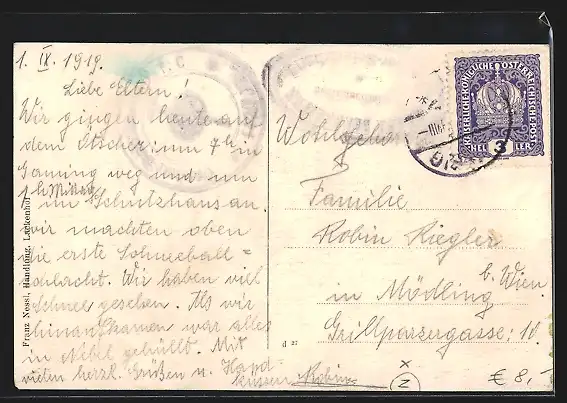 1. IX. 1919.
Liebe Eltern!
Wir gingen heute auf
dem Ötscher um 7h in
Gaming weg und um
1h Mittag
im Schutzhaus an.
wir machten oben
die erste Schneeball-
schlacht. Wir haben viel
Schnee gesehen. Als wir
hinaufkamen war alles
in Nebel gehüllt. Mit
vielen herzl. Grüßen u. Hand-
küssen Robin
Franz Nessl, Handlung, Lackenhof
d 25
KAISERLICHE KÖNIGLICHE ÖSTERREICHISCHE POST
HELLER
3
Wohlgeboren
Familie
Robin Riegler
in Mödling b. Wien.
Grillparzergasse: 10.
x
2
€ 8,-